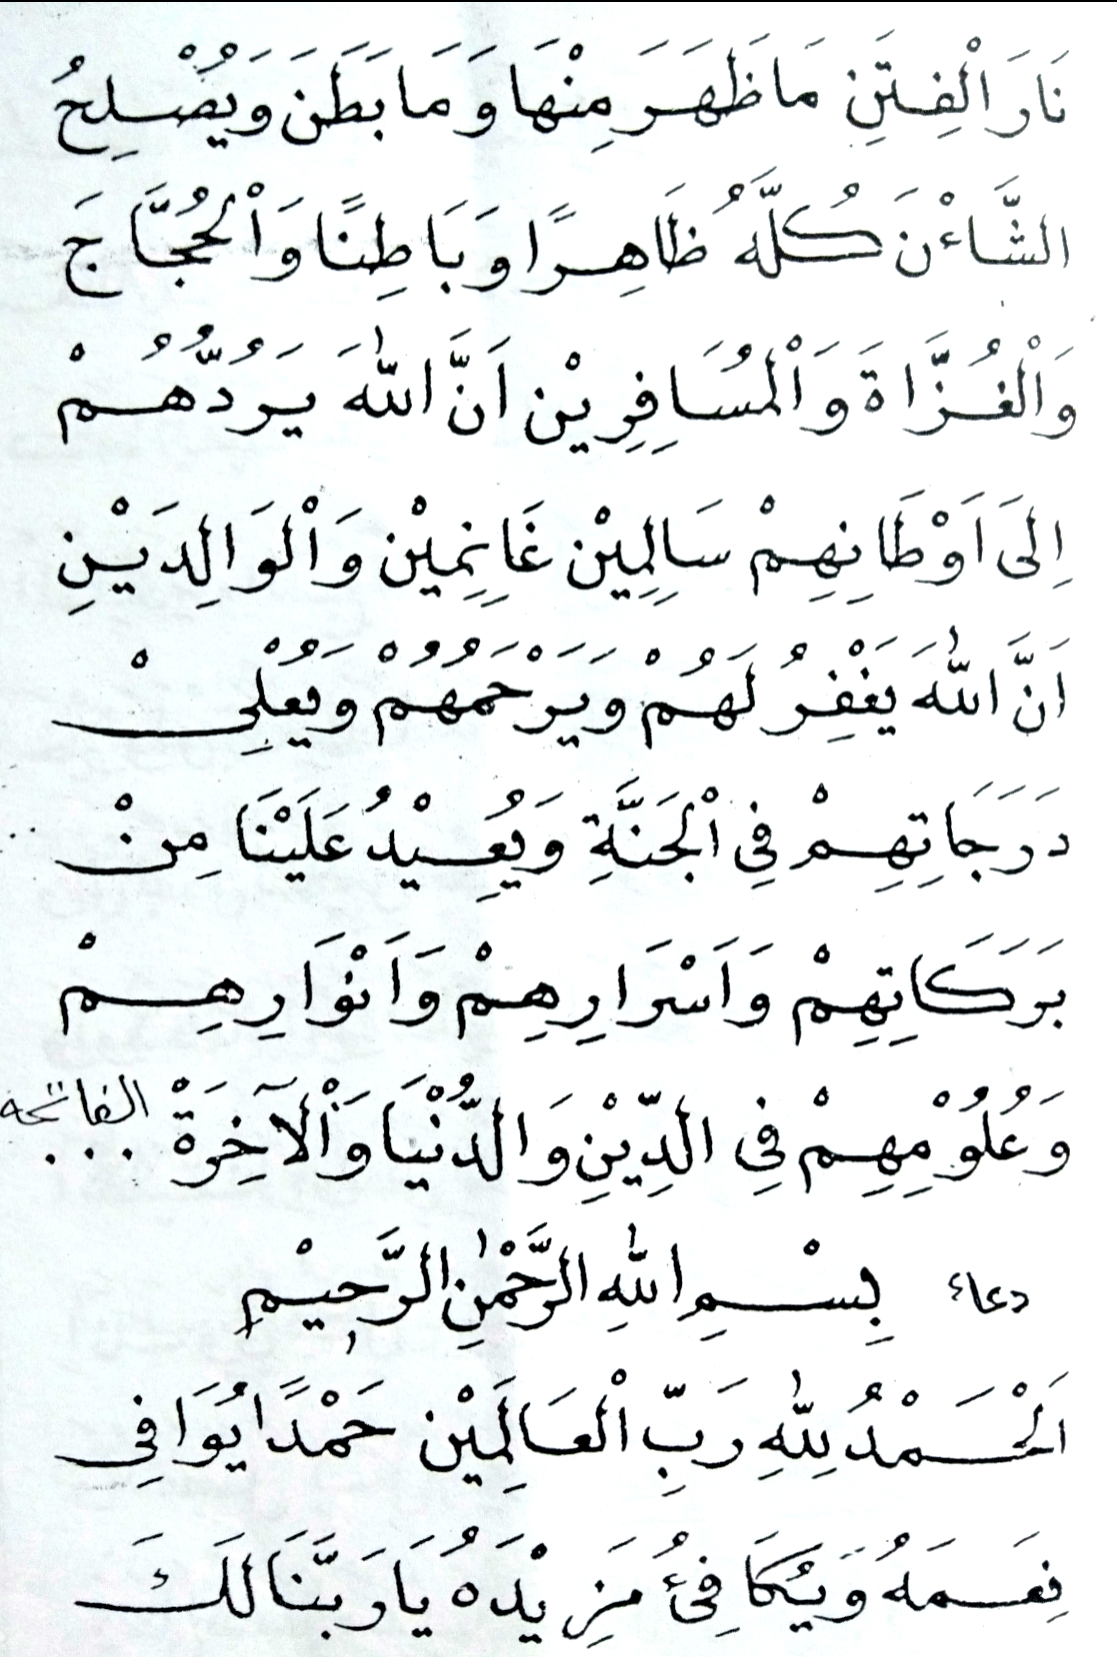 نَارَ الْفِتَنِ مَا ظَهَرَ مِنْهَا وَمَا بَطَنَ وَيُصْلِحُ
الشَّاءْنَ كُلَّهُ ظَاهِرًا وَبَاطِنًا وَالْحُجَّاجَ
وَالْغُزَّاةَ وَالْمُسَافِرِيْنَ اَنَّ اللّٰهَ يَرُدُّهُمْ
اِلَى اَوْطَانِهِمْ سَالِمِيْنَ غَانِمِيْنَ وَالْوَالِدَيْنِ
اَنَّ اللّٰهَ يَغْفِرُ لَهُمْ وَيَرْحَمُهُمْ وَيُعْلِيْ
دَرَجَاتِهِمْ فِي الْجَنَّةِ وَيُعِيْدُ عَلَيْنَا مِنْ
بَرَكَاتِهِمْ وَاَسْرَارِهِمْ وَاَنْوَارِهِمْ
وَعُلُوْمِهِمْ فِي الدِّيْنِ وَالدُّنْيَا وَالْآخِرَةْ ... الفاتحة
دعاء بِسْمِ اللّٰهِ الرَّحْمٰنِ الرَّحِيْمِ
اَلْحَمْدُ لِلّٰهِ رَبِّ الْعَالَمِيْنَ حَمْدًا يُوَافِي
نِعَمَهُ وَيُكَافِئُ مَزِيْدَهُ يَا رَبَّنَا لَكَ